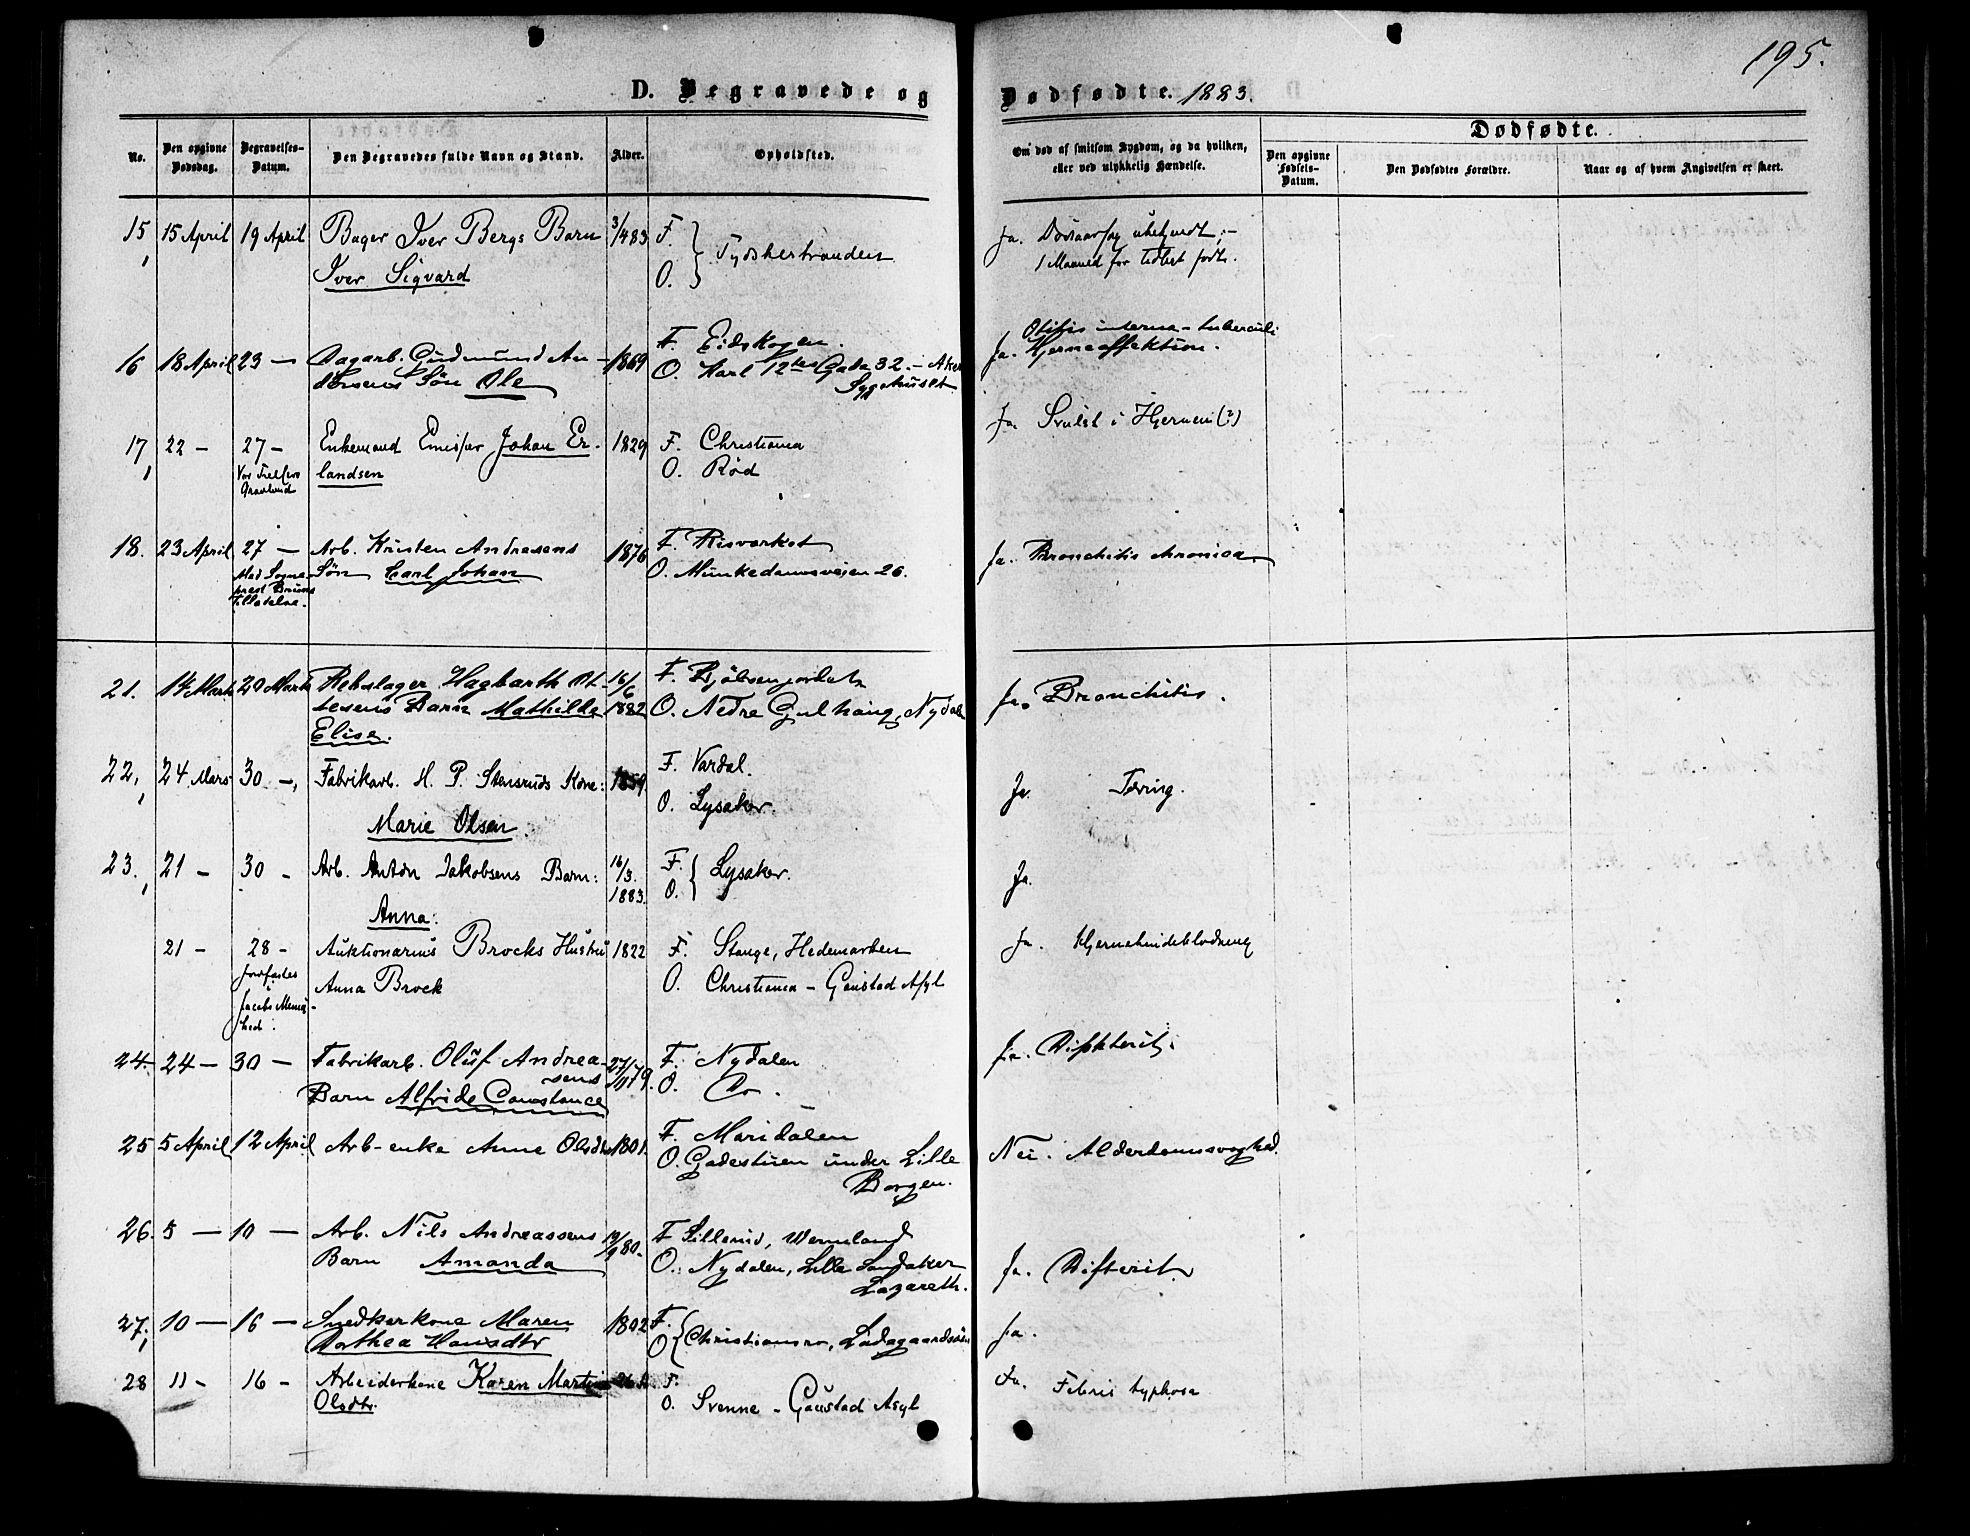 195.
D. Begravede og Dødfødte. 1883.
No.
Den opgivne Dødsdag.
Begravelses-Datum.
Den Begravedes fulde Navn og Stand.
Alder.
Opholdssted.
Om død af smitsom Sygdom, og da hvilken, eller ved ulykkelig Hændelse.
Dødfødte.
Den opgivne Fødsels-Datum.
Den Dødfødtes Forældre.
Naar og af hvem Angivelsen er skeet.
15, 15 April 19 April Bager Iver Bergs Barn 3/4 83 F.
Iver Sigvard O. } Tydskestranden
Ja. Dødsaarsag ubekjendt, -
1 Maaned for tidligt født.
16 18 April 23 — Dagarb. Gudmund An- 1869 F. Eidskogen.
dersens Søn Ole O. Karl 12tes Gade 32. - Aker
Sygehuset
Otitis interna - tuberculi
Ja. Hjerneaffektion.
17, 22 - 27 - Enkemand Emissær Johan Er- 1829 F. Christiania
Vor Frelsers Gravlund
landsen O. Rød
Ja. Svulst i Hjernen (?)
18. 23 April 27 — Arb. Kristen Andreasens 1876 F. Risverket
Med Sogne-
prest Bruuns
Tilladelse.
Søn Carl Johan O. Munkedamsveien 26.
Ja. Bronchitis chronica
21. 14 Marts 20 Marts Rebslager Hagbarth Ol- 16/6 1882 F. Bjølsenjordet
sens Barn Mathilde O. Nedre Gulhaug, Nydalen
Elise.
Ja. Bronchitis.
22, 24 Mars 30 -, Fabrikarb. H. P. Stensruds Kone: 1859. F. Vardal.
Marie Olsen. O. Lysaker.
Ja. Tæring.
23. 21 - 30 - Arb. Anton Jakobsens Barn: 16/3. 1883. F. O. { Lysaker.
Anna:
Ja.
21 - 28 - Auktionarius Brocks Hustru 1822 F. Stange, Hedemarken
jordfæstes i Jacobs Menighed.
Anna Brock O. Christiania - Gaustad Asyl
Ja. Hjernehindeblødning
24. 24 — 30 — Fabrikarb. Oluf Andrea- 27/1 79. F. Nydalen
sens
Barn Alfride Constance O. Do.
Ja. Difhterit.
25 5 April 12 April Arb-enke Anne Olsdtr 1801. F. Maridalen
O. Gadestuen under Lille
Borgen.
Nei. Alderdomssvaghed.
26. 5 — 10 — Arb. Nils Andreassens 19/9 80. F Sillerud, Wermland
Barn Amanda O. Nydalen, Lille Sandaker
Lazareth.
Ja. Difterit
27, 10 — 16 — Snedkerkone Maren 1802 F.
Dorthea Hansdtr O. { Christiansro, Ladegaardsøen
Ja.
28 11 - 16 - Arbeiderkone Karen Martine F.
Olsdtr. O. Svenne - Gaustad Asyl
Ja. Febris typhosa